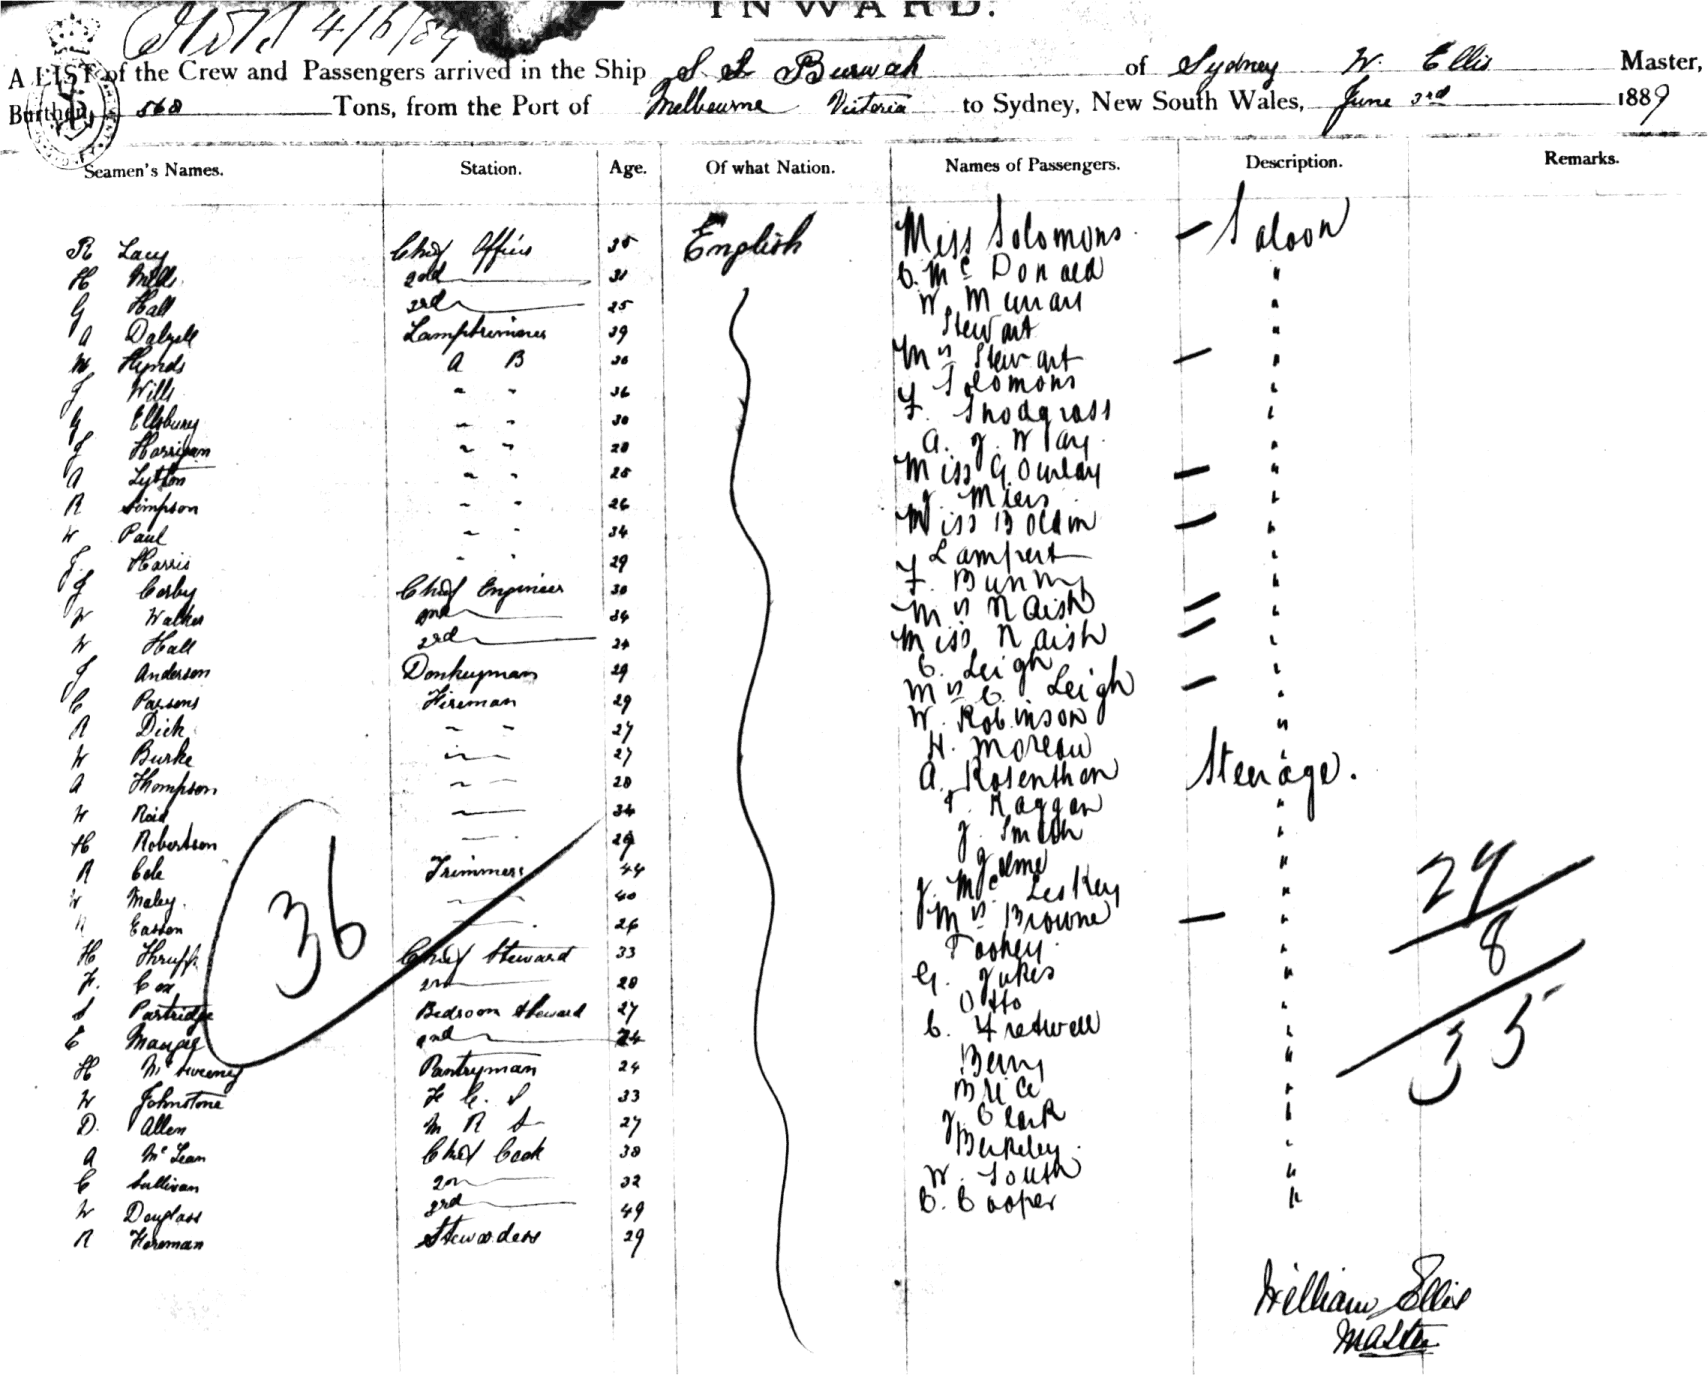 INWARD.
4/6/89
A LIST of the Crew and Passengers arrived in the Ship S. S. Burwah of Sydney W. Ellis Master,
Burthen 568 Tons, from the Port of Melbourne Victoria to Sydney, New South Wales, June 3rd 1889
Seamen's Names. Station. Age. Of what Nation. Names of Passengers. Description. Remarks.
R Lacy Chief Officer 35 English Miss Solomons. — Saloon
H Mills 2nd 31 C. Mc Donald "
G Hall 3rd 25 W. Murray "
A Dalzell Lamptrimmer 39 Stewart "
W Hynds A B 36 Mrs Stewart — "
J Wills " " 36 Solomons "
G Ellsbury " " 30 F. Snodgrass "
J Harrigan " " 28 A. J. Way "
A Lytton " " 25 Miss Gourlay — "
R Simpson " " 26 J. Miers "
W Paul " " 34 Miss Boldin — "
J. Harris " " 29 Lampert "
J Corby Chief Engineer 30 F. Bunny "
W Walker 2nd 34 Mrs Naish — "
W Hall 3rd 24 Miss Naish — "
J Anderson Donkeyman 29 C. Leigh "
C Parsons Fireman 29 Mrs C. Leigh — "
R Dick " " 27 W. Robinson "
W Burke " 27 H. Moreau "
A Thompson " " 28 A. Rosenthan Steerage.
W Reid 34 Raggan "
H Robertson 29 J. Smith "
R Cole Trimmers 44 "
W Maley. 40 J. McLeskey "
Easson 26 Mrs Browne — "
H Thrupp Chief Steward 33 Tookey. "
F. Cox 2nd 28 G. Jukes "
S Partridge Bedroom Steward 27 Otto "
E 2nd 24 C. Fretwell "
H McSweeney Pantryman 24 Berry "
W Johnstone F C S 33 Brice "
D. Allen M R S 27 J Clark "
A McLean Chief Cook 38 Berkeley. "
C Sullivan 2nd 32 W. South "
W Douglass 3rd 49 C. Cooper "
R Horeman Stewardess 29
36
27
8
35
William Ellis
Master